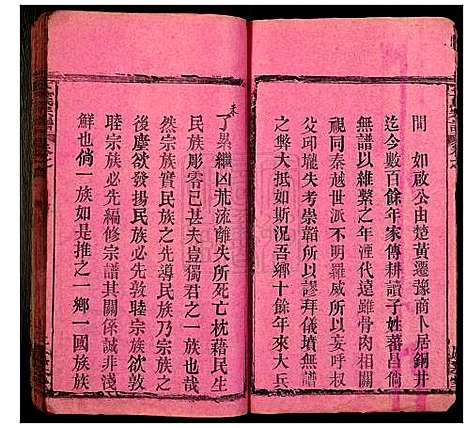 間　如啟公由楚黃遷豫商卜居銅井
迄今數百餘年家傳耕讀子姓蕃昌倘
無譜以維繫之年湮代遠雖骨肉相關
視同秦越世派不明羅威所以妄呼叔
父邱壠失考崇韜所以謬拜儀墳無譜
之弊大抵如斯况吾鄉十餘年來大兵
未了累繼凶荒流離失所死亡枕藉民生
民族彫零已甚夫豈獨君之一族也哉
然宗族實民族之先導民族乃宗族之
後塵欲發揚民族必先敦睦宗族欲敦
睦宗族必先編修宗譜其關係誠非淺
鮮也倘一族如是推之一鄉一國族族